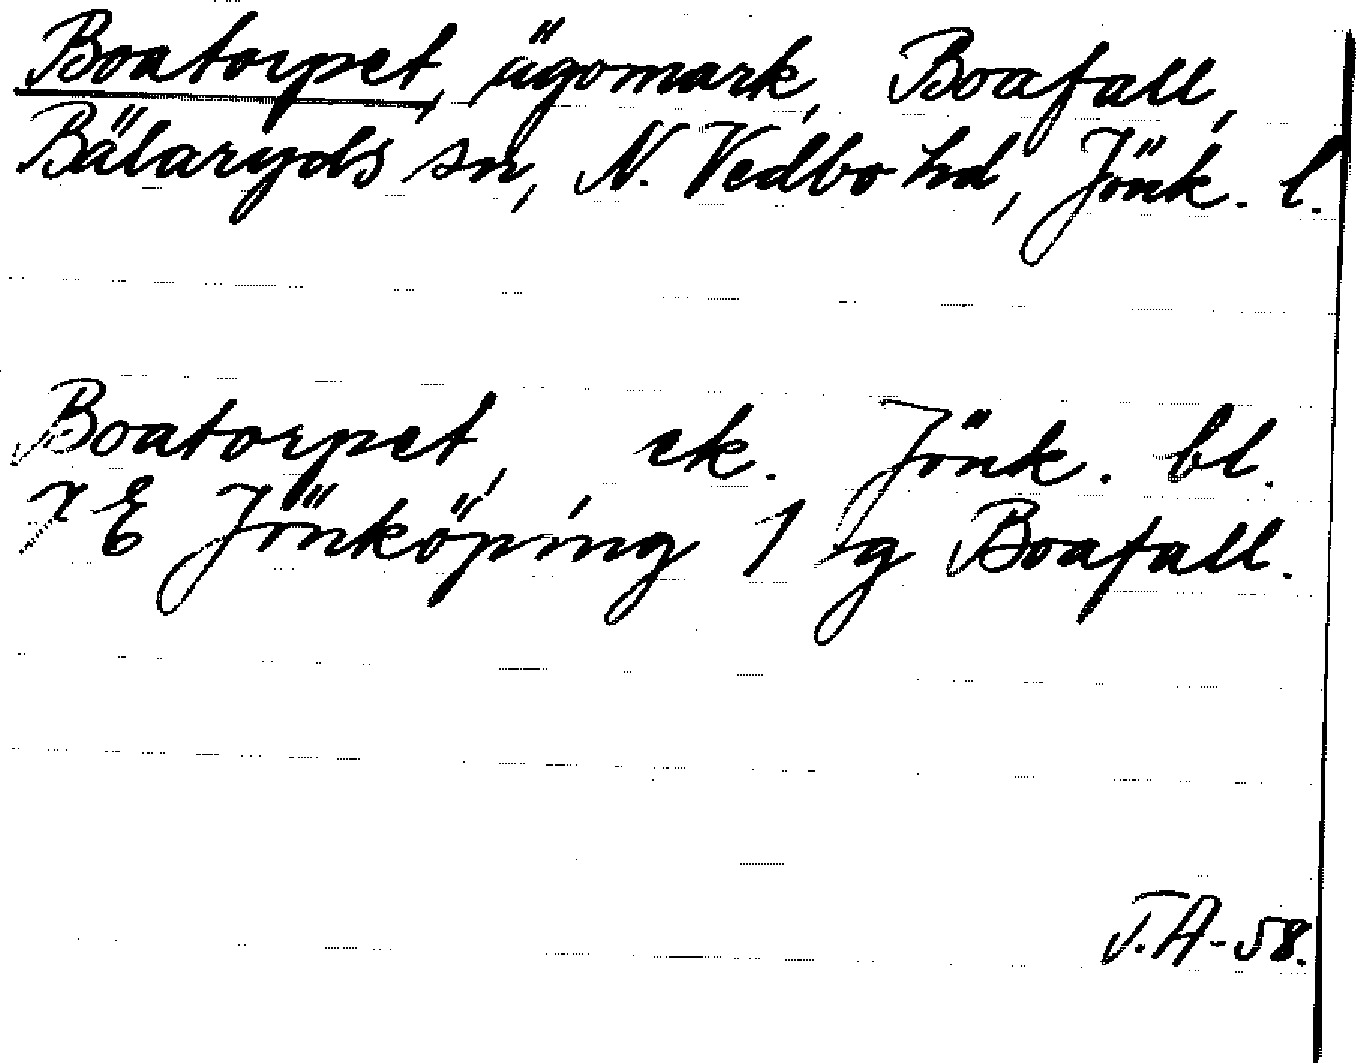 Boatorpet, ägomark, Boafall,
Bälaryds sn, N. Vedbo hd, Jönk. l.
Boatorpet, ek. Jönk. bl.
7 E Jönköping 1 fg Boafall.
J.A-58.